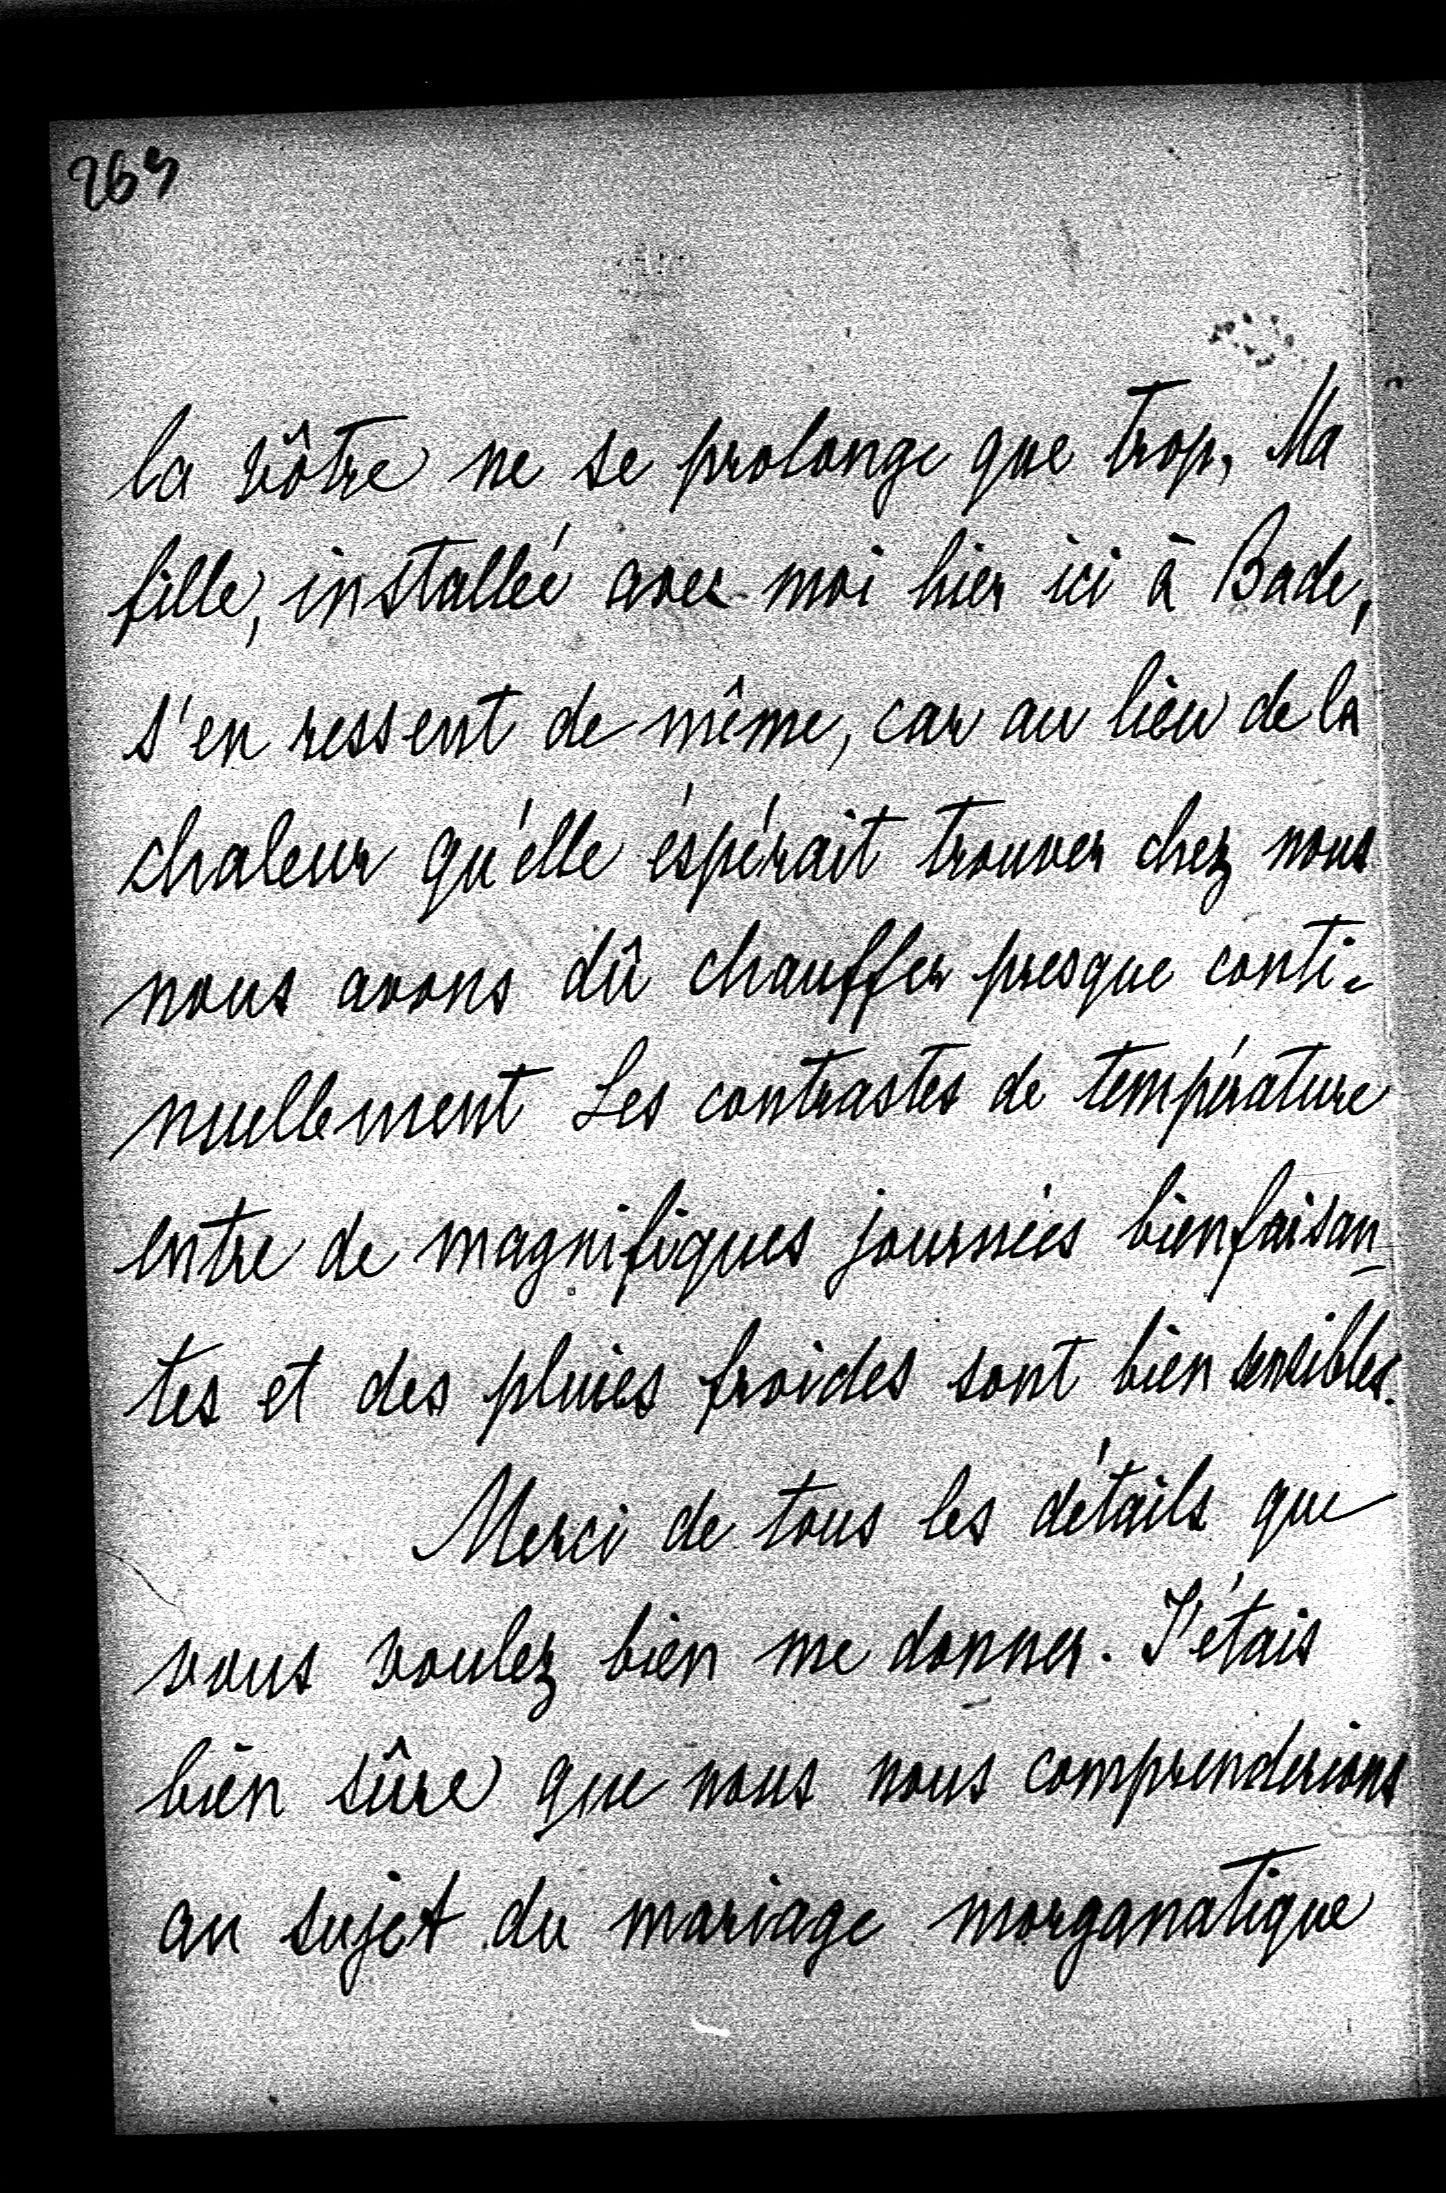 263
la vôtre ne se prolonge que trop, Ma
fille, installée avec moi hier ici à Bade,
s'en ressent de même, car au lieu de la
chaleur qu'elle éspérait trouver chez nous
nous avons dû chauffer presque conti=
nuellement Les contrastes de température
entre de magnifiques journées bienfaisan_
tes et des pluies froides sont bien sensibles.
Merci de tous les détails que
vous voulez bien me donner. J'étais
bien sûre que nous nous comprenderions
au sujet du mariage morganatique